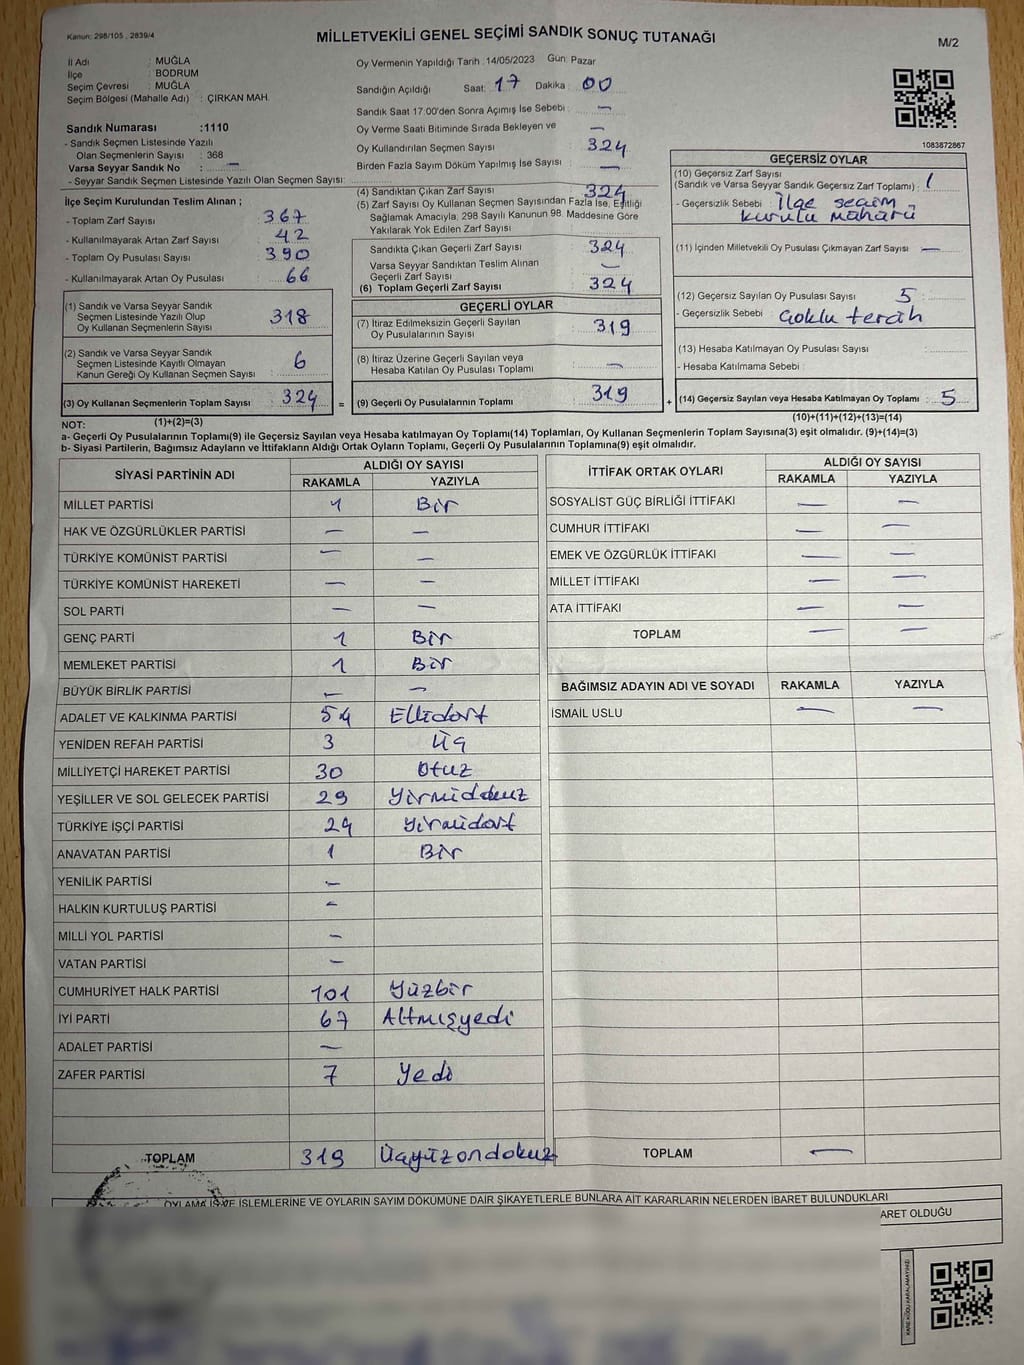 Kanun: 298/105 , 2839/4
MİLLETVEKİLİ GENEL SEÇİMİ SANDIK SONUÇ TUTANAĞI
M/2
İl Adı : MUĞLA
İlçe : BODRUM
Seçim Çevresi : MUĞLA
Seçim Bölgesi (Mahalle Adı) : ÇIRKAN MAH.
Sandık Numarası :1110
- Sandık Seçmen Listesinde Yazılı
Olan Seçmenlerin Sayısı : 368
Varsa Seyyar Sandık No : —
- Seyyar Sandık Seçmen Listesinde Yazılı Olan Seçmen Sayısı:
Oy Vermenin Yapıldığı Tarih : 14/05/2023 Gün: Pazar
Sandığın Açıldığı Saat: 17 Dakika : 00
Sandık Saat 17:00'den Sonra Açımış İse Sebebi : —
Oy Verme Saati Bitiminde Sırada Bekleyen ve —
Oy Kullandırılan Seçmen Sayısı : 324
Birden Fazla Sayım Döküm Yapılmış İse Sayısı : —
1083872867
İlçe Seçim Kurulundan Teslim Alınan ;
- Toplam Zarf Sayısı : 367
- Kullanılmayarak Artan Zarf Sayısı : 42
- Toplam Oy Pusulası Sayısı : 390
- Kullanılmayarak Artan Oy Pusulası : 66
(1) Sandık ve Varsa Seyyar Sandık
Seçmen Listesinde Yazılı Olup
Oy Kullanan Seçmenlerin Sayısı : 318
(2) Sandık ve Varsa Seyyar Sandık
Seçmen Listesinde Kayıtlı Olmayan
Kanun Gereği Oy Kullanan Seçmen Sayısı : 6
(3) Oy Kullanan Seçmenlerin Toplam Sayısı : 324
(1)+(2)=(3)
(4) Sandıktan Çıkan Zarf Sayısı : 324
(5) Zarf Sayısı Oy Kullanan Seçmen Sayısından Fazla İse, Eşitliği
Sağlamak Amacıyla; 298 Sayılı Kanunun 98. Maddesine Göre
Yakılarak Yok Edilen Zarf Sayısı :
Sandıkta Çıkan Geçerli Zarf Sayısı : 324
Varsa Seyyar Sandıktan Teslim Alınan
Geçerli Zarf Sayısı : —
(6) Toplam Geçerli Zarf Sayısı : 324
GEÇERLİ OYLAR
(7) İtiraz Edilmeksizin Geçerli Sayılan
Oy Pusulalarının Sayısı : 319
(8) İtiraz Üzerine Geçerli Sayılan veya
Hesaba Katılan Oy Pusulası Toplamı : —
= (9) Geçerli Oy Pusulalarının Toplamı : 319
GEÇERSİZ OYLAR
(10) Geçersiz Zarf Sayısı
(Sandık ve Varsa Seyyar Sandık Geçersiz Zarf Toplamı) : /
- Geçersizlik Sebebi : İlçe seçim
kurulu
(11) İçinden Milletvekili Oy Pusulası Çıkmayan Zarf Sayısı : —
(12) Geçersiz Sayılan Oy Pusulası Sayısı : 5
- Geçersizlik Sebebi : Çoklu
(13) Hesaba Katılmayan Oy Pusulası Sayısı :
- Hesaba Katılmama Sebebi :
+ (14) Geçersiz Sayılan veya Hesaba Katılmayan Oy Toplamı : 5
(10)+(11)+(12)+(13)=(14)
NOT:
a- Geçerli Oy Pusulalarının Toplamı(9) ile Geçersiz Sayılan veya Hesaba Katılmayan Oy Toplamı(14) Toplamları, Oy Kullanan Seçmenlerin Toplam Sayısına(3) eşit olmalıdır. (9)+(14)=(3)
b- Siyasi Partilerin, Bağımsız Adayların ve İttifakların Aldığı Ortak Oyların Toplamı, Geçerli Oy Pusulalarının Toplamına(9) eşit olmalıdır.
SİYASİ PARTİNİN ADI
ALDIĞI OY SAYISI
RAKAMLA YAZIYLA
MİLLET PARTİSİ 1 Bir
HAK VE ÖZGÜRLÜKLER PARTİSİ — —
TÜRKİYE KOMÜNİST PARTİSİ — —
TÜRKİYE KOMÜNİST HAREKETİ — —
SOL PARTİ — —
GENÇ PARTİ 1 Bir
MEMLEKET PARTİSİ 1 Bir
BÜYÜK BİRLİK PARTİSİ — —
ADALET VE KALKINMA PARTİSİ 54 Ellidört
YENİDEN REFAH PARTİSİ 3 Üç
MİLLİYETÇİ HAREKET PARTİSİ 30 Otuz
YEŞİLLER VE SOL GELECEK PARTİSİ 29 Yirmidokuz
TÜRKİYE İŞÇİ PARTİSİ 24 Yirmidört
ANAVATAN PARTİSİ 1 Bir
YENİLİK PARTİSİ —
HALKIN KURTULUŞ PARTİSİ —
MİLLİ YOL PARTİSİ —
VATAN PARTİSİ —
CUMHURİYET HALK PARTİSİ 101 Yüzbir
İYİ PARTİ 67 Altmışyedi
ADALET PARTİSİ —
ZAFER PARTİSİ 7 Yedi
TOPLAM 319 Üçyüzondokuz
İTTİFAK ORTAK OYLARI
ALDIĞI OY SAYISI
RAKAMLA YAZIYLA
SOSYALİST GÜÇ BİRLİĞİ İTTİFAKI — —
CUMHUR İTTİFAKI — —
EMEK VE ÖZGÜRLÜK İTTİFAKI — —
MİLLET İTTİFAKI — —
ATA İTTİFAKI — —
TOPLAM — —
BAĞIMSIZ ADAYIN ADI VE SOYADI RAKAMLA YAZIYLA
İSMAİL USLU — —
TOPLAM —
OYLAMA İŞ VE İŞLEMLERİNE VE OYLARIN SAYIM DÖKÜMÜNE DAİR ŞİKAYETLERLE BUNLARA AİT KARARLARIN NELERDEN İBARET BULUNDUKLARI
ARET OLDUĞU
KARE KODU KARALAMAYINIZ!